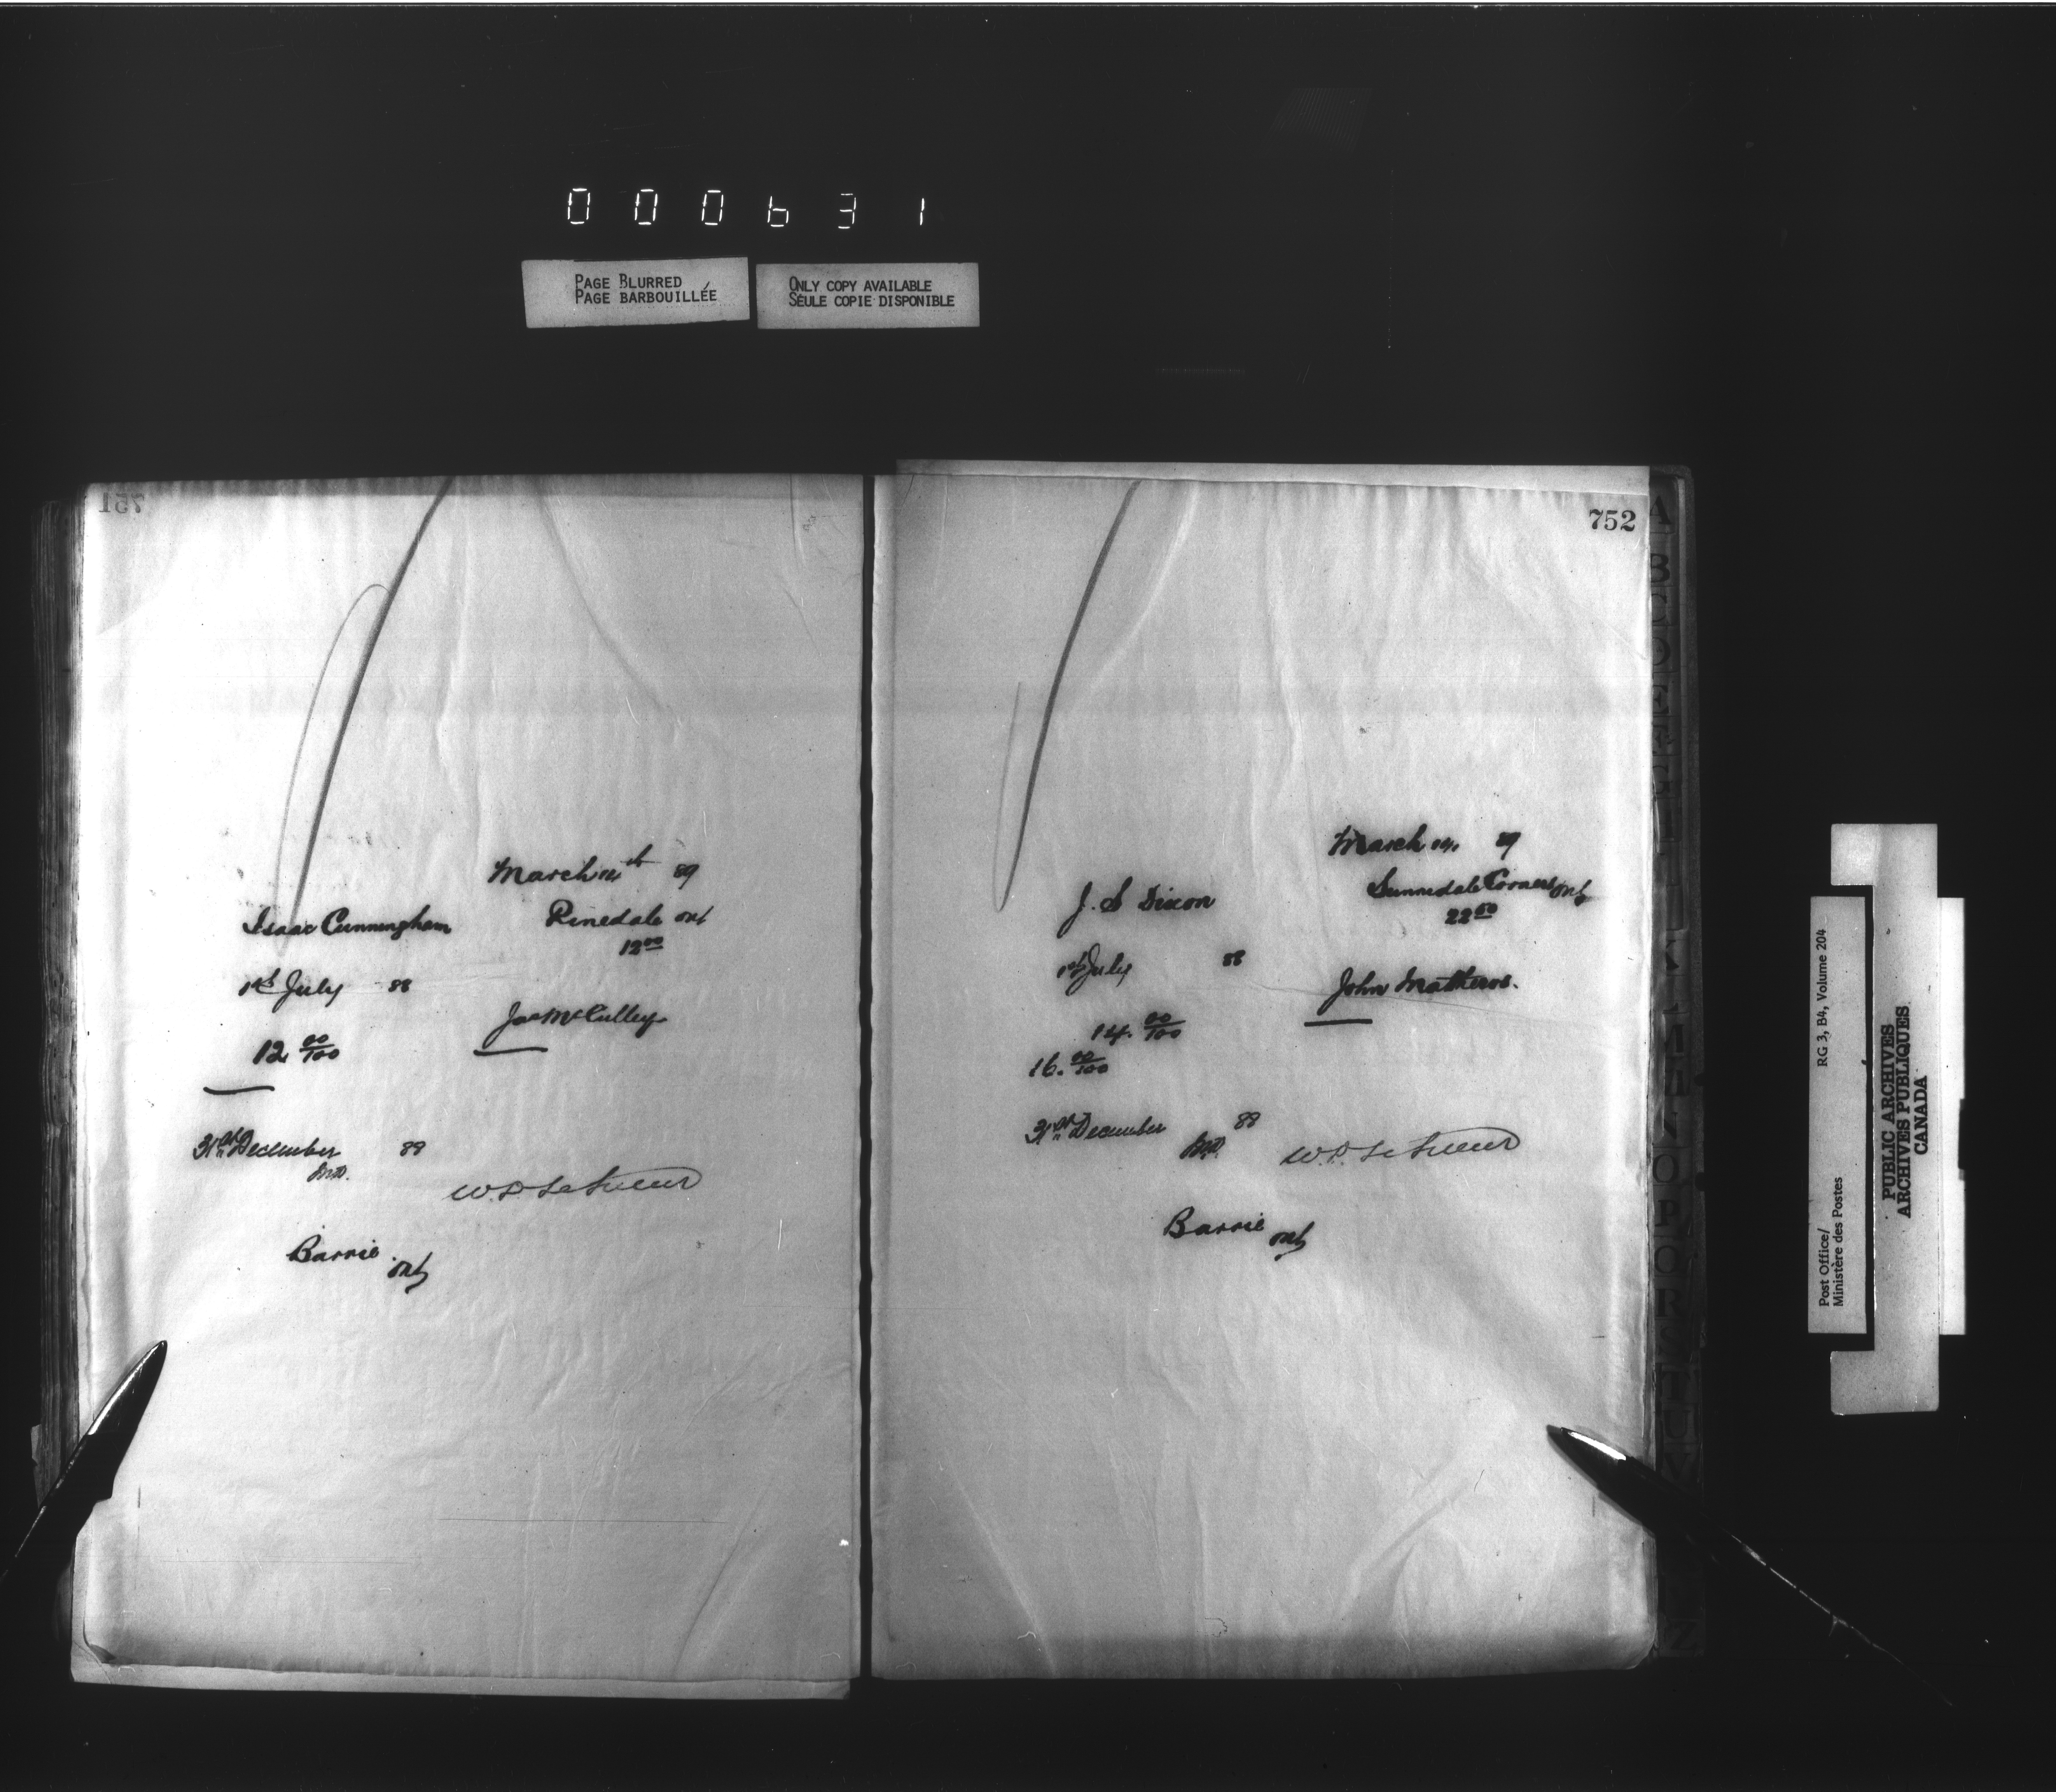 000631
PAGE BLURRED
PAGE BARBOUILLÉE
ONLY COPY AVAILABLE
SEULE COPIE DISPONIBLE
751
March 14th 89
Isaac Cunningham Pinedale Ont
12 00
1st July 88
Jas McCulley
12 00/100
31st December 88
M.D.
W.D. LeSueur
Barrie Ont
752
March 14. 89
J. S Dixon Sunnidale Corners Ont
22 50
1st July 88
John Mathers.
14. 00/100
16. 00/100
31st December 88
M.D.
W.D. LeSueur
Barrie Ont
A
B
C
D
E
K
L
M
N
O
P
Q
R
S
T
U
V
Z
Post Office/
Ministère des Postes
RG 3, B4, Volume 204
PUBLIC ARCHIVES
ARCHIVES PUBLIQUES
CANADA